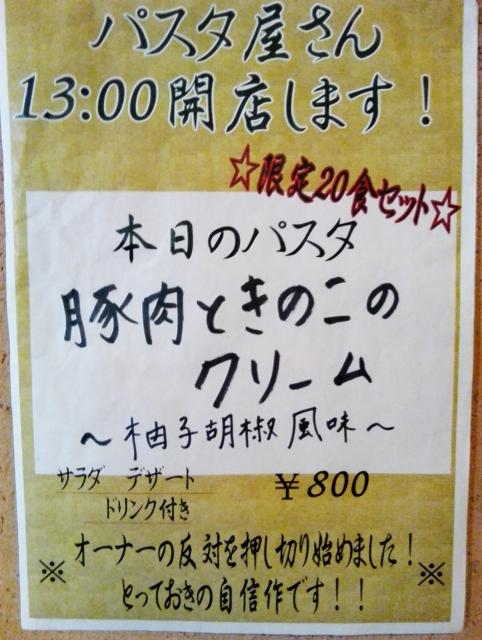 パスタ屋さん
13:00開店します！
☆限定20食セット☆
本日のパスタ
豚肉ときのこの
クリーム
～柚子胡椒風味～
サラダ デザート ￥800
ドリンク付き
※ オーナーの反対を押し切り始めました！ ※
とっておきの自信作です！！